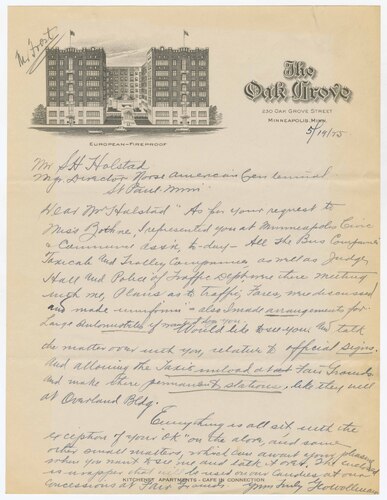 Mr Frost
The
Oak Grove
230 OAK GROVE STREET
MINNEAPOLIS, MINN.
EUROPEAN-FIREPROOF
5/19/25
Mr S.H. Holstad
Mg Director Norse American Centennial
St Paul Minn
Dear Mr Halstad" As for your request to
Miss I represented you at Minneapolis Civic
& Commerce Assn, to-day - All the Bus Companies
Taxicabs and Trolley Companies as well as Judge
Hall and Police & Traffic Dept. were there meeting
with me, Plans as to traffic, Fares, were discussed
and made uniform - also I made arrangements for
Large Automobiles if wanted by you
Would like to see you and talk
the matter over with you, relative to official signs.
And allowing the Taxis unload at at Fair Grounds
and make their permanent stations, like they will
at Overland Bldg.
Everything is all set with the
exception of your OK on the above, and some
other small matters, which can await your pleasure
when you want to see me and talk it over. The enclosed
is wrapper that will be used on our Candies at our
concessions at Fair Grounds
Yours Truly
KITCHENET APARTMENTS - CAFE IN CONNECTION